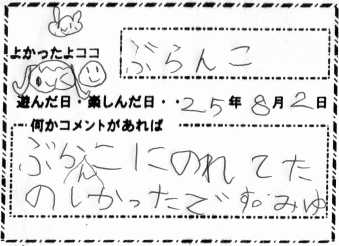 よかったよココ
ぶらんこ
遊んだ日・楽しんだ日・・25年8月2日
何かコメントがあれば
ぶらんこにのれてた
のしかったです。みゆ